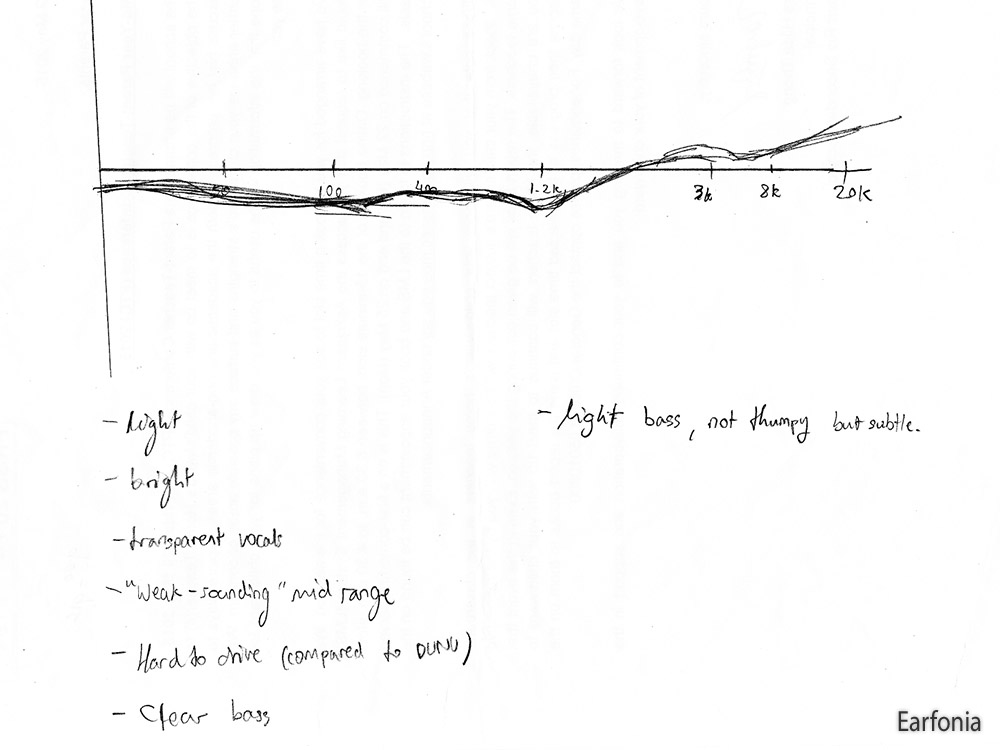 50 100 400 1.2k 3k 8k 20k
- light
- bright
- transparent vocals
- "Weak-sounding" mid range
- Hard to drive (compared to DUNU)
- Clear bass
- light bass, not thumpy but subtle.
Earfonia